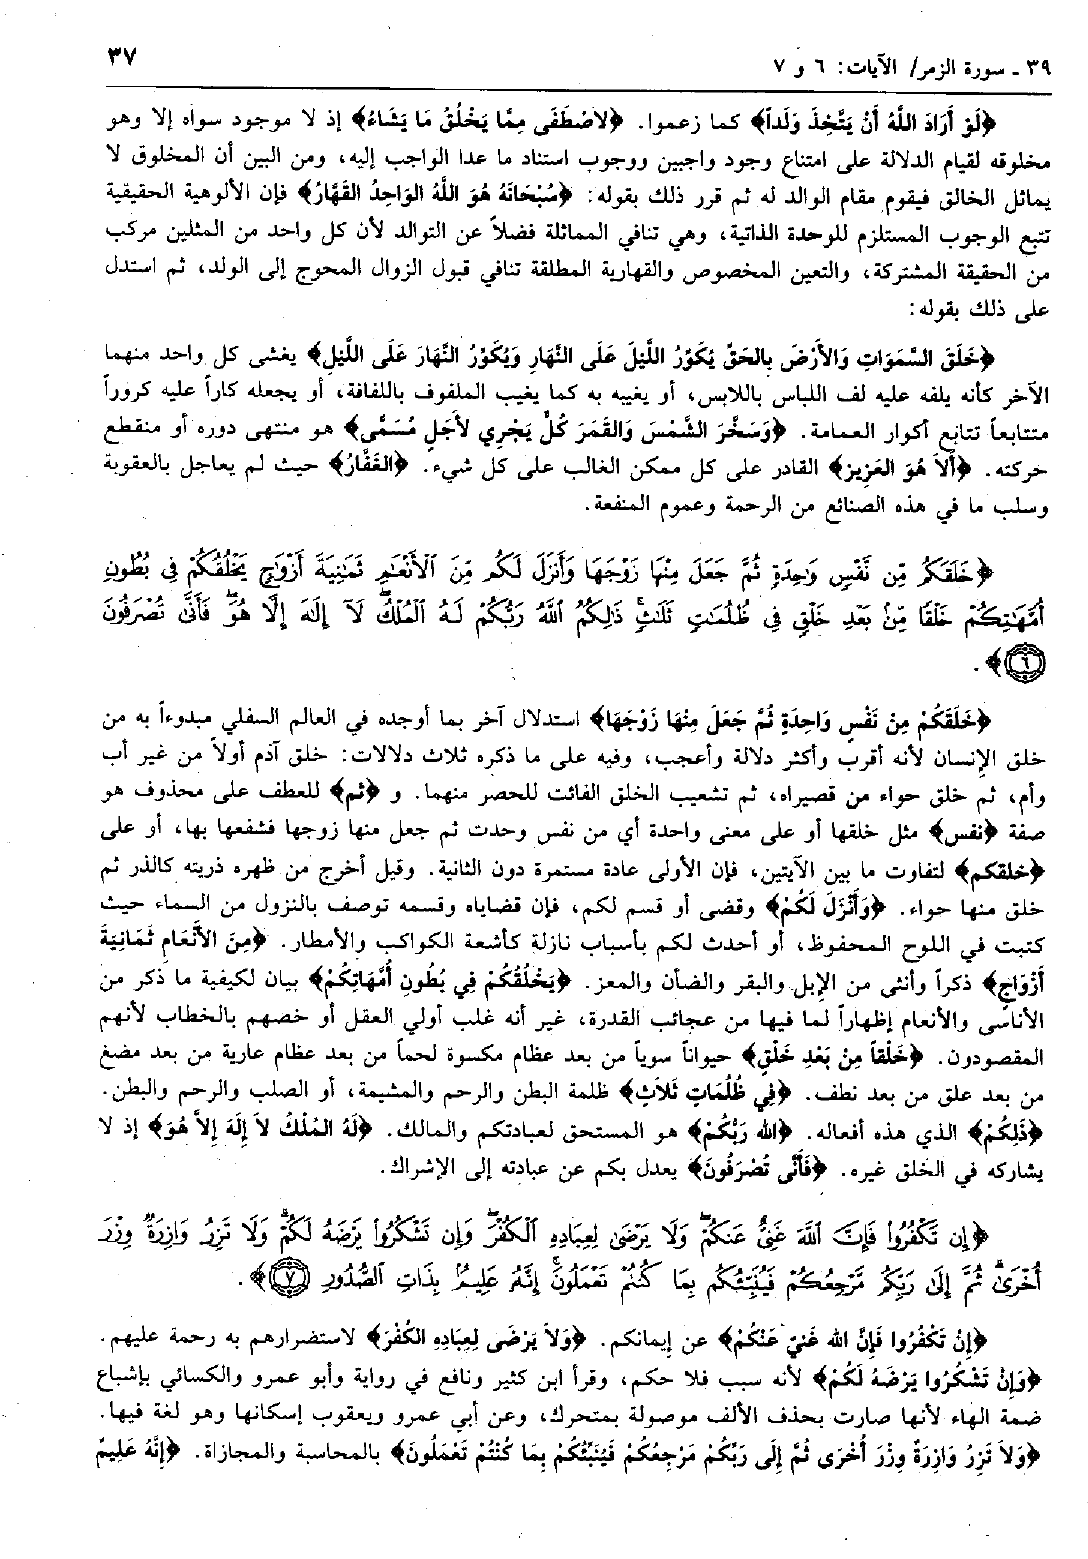 ٣٩ ـ سورة الزمر/ الآيات: ٦ و ٧
٣٧
﴿لَوْ أَرَادَ اللَّهُ أَنْ يَتَّخِذَ وَلَداً﴾ كما زعموا. ﴿لاَصْطَفَى مِمَّا يَخْلُقُ مَا يَشَاءُ﴾ إذ لا موجود سواه إلا وهو
مخلوقه لقيام الدلالة على امتناع وجود واجبين ووجوب استناد ما عدا الواجب إليه، ومن البين أن المخلوق لا
يماثل الخالق فيقوم مقام الوالد له ثم قرر ذلك بقوله: ﴿سُبْحَانَهُ هُوَ اللَّهُ الوَاحِدُ القَهَّارُ﴾ فإن الألوهية الحقيقية
تتبع الوجوب المستلزم للوحدة الذاتية، وهي تنافي المماثلة فضلاً عن التوالد لأن كل واحد من المثلين مركب
من الحقيقة المشتركة، والتعين المخصوص والقهارية المطلقة تنافي قبول الزوال المحوج إلى الولد، ثم استدل
على ذلك بقوله:
﴿خَلَقَ السَّمَوَاتِ وَالأَرْضَ بِالحَقِّ يُكَوِّرُ اللَّيْلَ عَلَى النَّهَارِ وَيُكَوِّرُ النَّهَارَ عَلَى اللَّيْلِ﴾ يغشى كل واحد منهما
الآخر كأنه يلفه عليه لف اللباس باللابس، أو يغيبه به كما يغيب الملفوف باللفافة، أو يجعله كاراً عليه كروراً
متتابعاً تتابع أكوار العمامة. ﴿وَسَخَّرَ الشَّمْسَ وَالقَمَرَ كُلٌّ يَجْرِي لأَجَلٍ مُسَمًّى﴾ هو منتهى دوره أو منقطع
حركته. ﴿أَلاَ هُوَ العَزِيزُ﴾ القادر على كل ممكن الغالب على كل شيء. ﴿الغَفَّارُ﴾ حيث لم يعاجل بالعقوبة
وسلب ما في هذه الصنائع من الرحمة وعموم المنفعة.
﴿خَلَقَكُم مِّن نَّفْسٍ وَٰحِدَةٍ ثُمَّ جَعَلَ مِنْهَا زَوْجَهَا وَأَنزَلَ لَكُم مِّنَ ٱلْأَنْعَٰمِ ثَمَٰنِيَةَ أَزْوَٰجٍ يَخْلُقُكُمْ فِى بُطُونِ
أُمَّهَٰتِكُمْ خَلْقًا مِّنۢ بَعْدِ خَلْقٍ فِى ظُلُمَٰتٍ ثَلَٰثٍ ذَٰلِكُمُ ٱللَّهُ رَبُّكُمْ لَهُ ٱلْمُلْكُ لَآ إِلَٰهَ إِلَّا هُوَ فَأَنَّىٰ تُصْرَفُونَ
٦﴾.
﴿خَلَقَكُمْ مِنْ نَفْسٍ وَاحِدَةٍ ثُمَّ جَعَلَ مِنْهَا زَوْجَهَا﴾ استدلال آخر بما أوجده في العالم السفلي مبدوءاً به من
خلق الإنسان لأنه أقرب وأكثر دلالة وأعجب، وفيه على ما ذكره ثلاث دلالات: خلق آدم أولاً من غير أب
وأم، ثم خلق حواء من قصيراه، ثم تشعيب الخلق الفائت للحصر منهما. و ﴿ثم﴾ للعطف على محذوف هو
صفة ﴿نفس﴾ مثل خلقها أو على معنى واحدة أي من نفس وحدت ثم جعل منها زوجها فشفعها بها، أو على
﴿خلقكم﴾ لتفاوت ما بين الآيتين، فإن الأولى عادة مستمرة دون الثانية. وقيل أخرج من ظهره ذريته كالذر ثم
خلق منها حواء. ﴿وَأَنْزَلَ لَكُمْ﴾ وقضى أو قسم لكم، فإن قضاياه وقسمه توصف بالنزول من السماء حيث
كتبت في اللوح المحفوظ، أو أحدث لكم بأسباب نازلة كأشعة الكواكب والأمطار. ﴿مِنَ الأَنْعَامِ ثَمَانِيَةَ
أَزْوَاجٍ﴾ ذكراً وأنثى من الإبل والبقر والضأن والمعز. ﴿يَخْلُقُكُمْ فِي بُطُونِ أُمَّهَاتِكُمْ﴾ بيان لكيفية ما ذكر من
الأناسي والأنعام إظهاراً لما فيها من عجائب القدرة، غير أنه غلب أولي العقل أو خصهم بالخطاب لأنهم
المقصودون. ﴿خَلْقاً مِنْ بَعْدِ خَلْقٍ﴾ حيواناً سوياً من بعد عظام مكسوة لحماً من بعد عظام عارية من بعد مضغ
من بعد علق من بعد نطف. ﴿فِي ظُلُمَاتٍ ثَلاَثٍ﴾ ظلمة البطن والرحم والمشيمة، أو الصلب والرحم والبطن.
﴿ذَلِكُمْ﴾ الذي هذه أفعاله. ﴿الله رَبُّكُمْ﴾ هو المستحق لعبادتكم والمالك. ﴿لَهُ المُلْكُ لاَ إِلَهَ إِلاَّ هُوَ﴾ إذ لا
يشاركه في الخلق غيره. ﴿فَأَنَّى تُصْرَفُونَ﴾ يعدل بكم عن عبادته إلى الإشراك.
﴿إِن تَكْفُرُوا۟ فَإِنَّ ٱللَّهَ غَنِىٌّ عَنكُمْ وَلَا يَرْضَىٰ لِعِبَادِهِ ٱلْكُفْرَ وَإِن تَشْكُرُوا۟ يَرْضَهُ لَكُمْ وَلَا تَزِرُ وَازِرَةٌ وِزْرَ
أُخْرَىٰ ثُمَّ إِلَىٰ رَبِّكُم مَّرْجِعُكُمْ فَيُنَبِّئُكُم بِمَا كُنتُمْ تَعْمَلُونَ إِنَّهُ عَلِيمٌۢ بِذَاتِ ٱلصُّدُورِ ٧﴾.
﴿إِنْ تَكْفُرُوا فَإِنَّ الله غَنِيٌّ عَنْكُمْ﴾ عن إيمانكم. ﴿وَلاَ يَرْضَى لِعِبَادِهِ الكُفْرَ﴾ لاستضرارهم به رحمة عليهم.
﴿وَإِنْ تَشْكُرُوا يَرْضَهُ لَكُمْ﴾ لأنه سبب فلا حكم، وقرأ ابن كثير ونافع في رواية وأبو عمرو والكسائي بإشباع
ضمة الهاء لأنها صارت بحذف الألف موصولة بمتحرك، وعن أبي عمرو ويعقوب إسكانها وهو لغة فيها.
﴿وَلاَ تَزِرُ وَازِرَةٌ وِزْرَ أُخْرَى ثُمَّ إِلَى رَبِّكُمْ مَرْجِعُكُمْ فَيُنَبِّئُكُمْ بِمَا كُنْتُمْ تَعْمَلُونَ﴾ بالمحاسبة والمجازاة. ﴿إِنَّهُ عَلِيمٌ